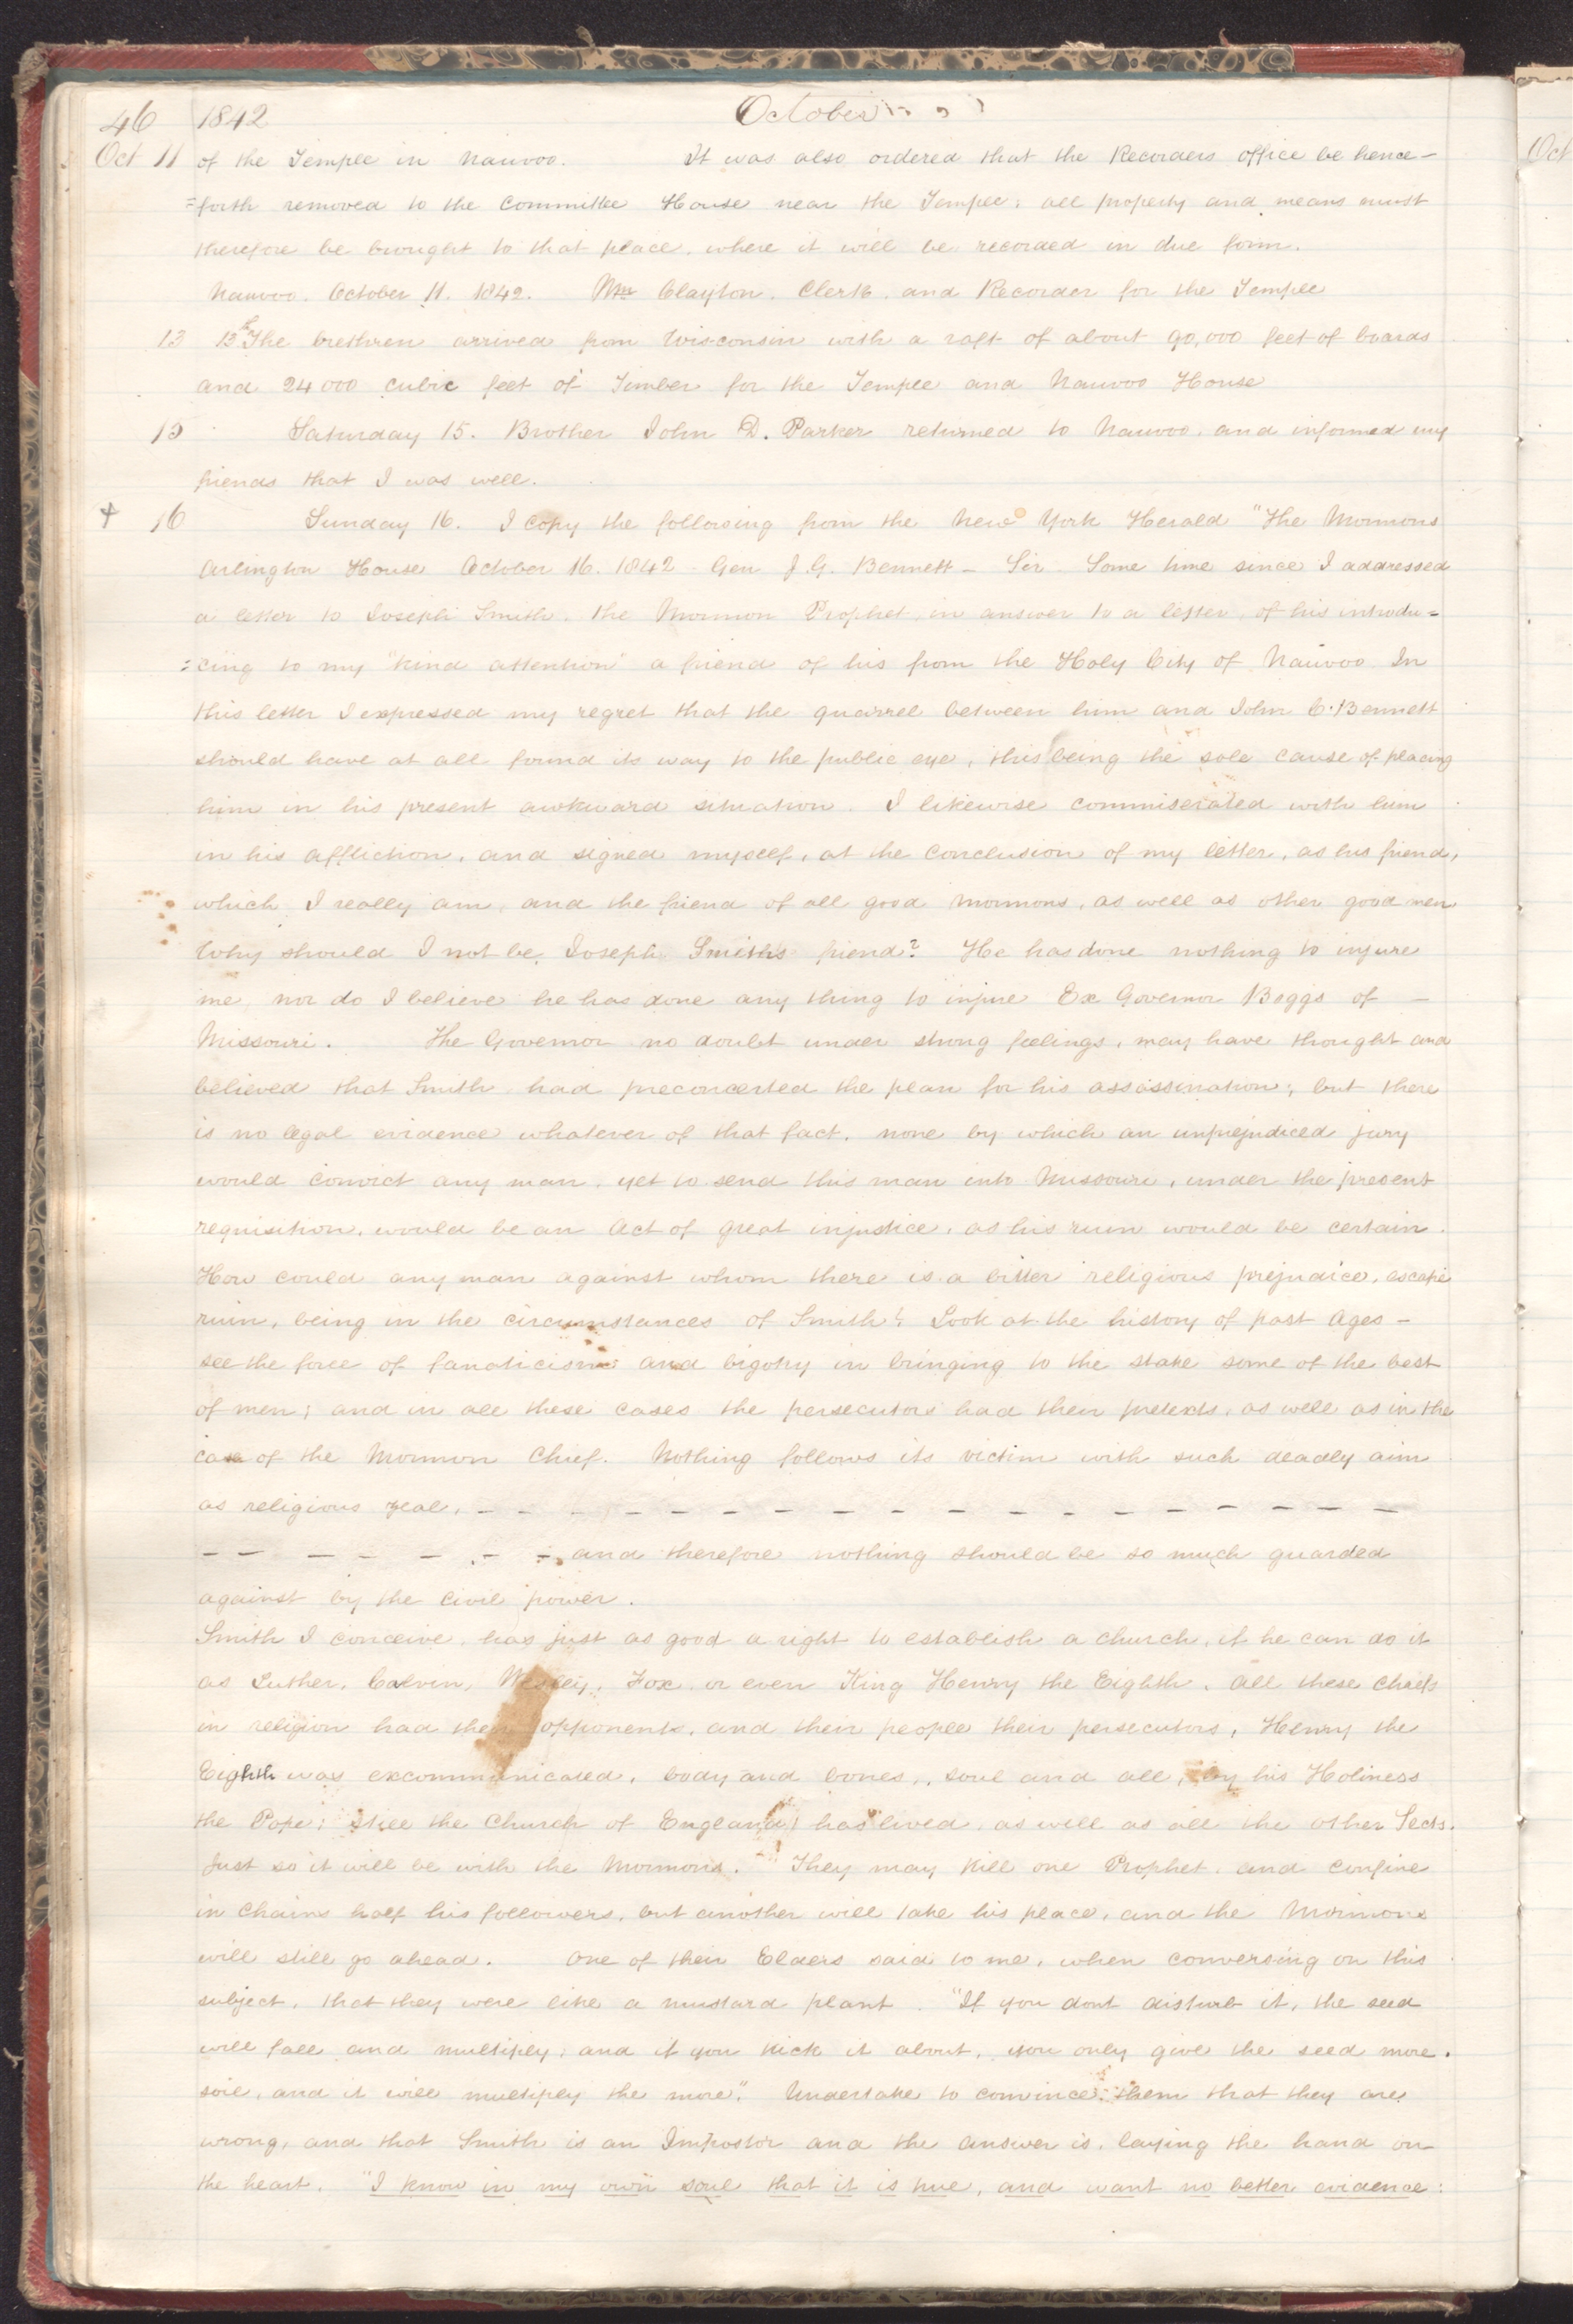 46 1842 October
Oct 11 of the Temple in Nauvoo. It was also ordered that the Recorders office be hence-
=forth removed to the Committee House near the Temple; all property and means must
therefore be brought to that place, where it will be recorded in due form.
Nauvoo. October 11. 1842. Wm Clayton. Clerk. and Recorder for the Temple
13 13th The brethren arrived from Wisconsin with a raft of about 90,000 feet of boards
and 24000 cubic feet of Timber for the Temple and Nauvoo House
15 Saturday 15. Brother John D. Parker returned to Nauvoo. and informed my
friends that I was well.
+ 16 Sunday 16. I copy the following from the New York Herald "The Mormons
Arlington House October 16. 1842 - Gen J. G. Bennett - Sir - Some time since I addressed
a letter to Joseph Smith. the Mormon Prophet in answer to a letter, of his introdu=
=cing to my "kind attention" a friend of his from the Holy City of Nauvoo. In
this letter I expressed my regret that the quarrel between him and John C. Bennett
should have at all found its way to the public eye, this being the sole cause of placing
him in his present awkward situation. I likewise commiserated with him
in his affliction, and signed myself, at the conclusion of my letter, as his friend,
which I really am, and the friend of all good Mormons, as well as other good men
Why should I not be Joseph Smith's friend? He has done nothing to injure
me, nor do I believe he has done any thing to injure Ex Governor Boggs of -
Missouri. The Governor no doubt under strong feelings, may have thought and
believed that Smith had preconcerted the plan for his assassination; but there
is no legal evidence whatever of that fact. none by which an unprejudiced jury
would convict any man. yet to send this man into Missouri, under the present
requisition, would be an Act of great injustice, as his ruin would be certain.
How could any man against whom there is a bitter religious prejudice, escape
ruin, being in the circumstances of Smith? Look at the history of past Ages -
see the force of fanaticism and bigotry in bringing to the stake some of the best
of men; and in all these cases the persecutors had their pretexts, as well as in the
case of the Mormon Chief. Nothing follows its victim with such deadly aim
as religious zeal, - - - - - - - - - - - - - - - - - -
- - - - - - - and therefore nothing should be so much guarded
against by the civil power.
Smith I conceive, has just as good a right to establish a church, if he can do it
as Luther, Calvin, Wesley, Fox, or even King Henry the Eighth. All these chiefs
in religion had their opponents, and their people their persecutors, Henry the
Eighth was excommunicated, body and bones, soul and all, by his Holiness
the Pope; still the Church of England has lived, as well as all the other Sects.
Just so it will be with the Mormons. They may kill one Prophet, and confine
in chains half his followers, but another will take his place, and the Mormons
will still go ahead. One of their Elders said to me, when conversing on this
subject, that they were like a mustard plant. "If you dont disturb it, the seed
will fall and multiply; and if you kick it about, you only give the seed more.
soil, and it will multiply the more." Undertake to convince them that they are
wrong, and that Smith is an Impostor and the answer is, laying the hand on
the heart, "I know in my own soul that it is true, and want no better evidence:
Oct